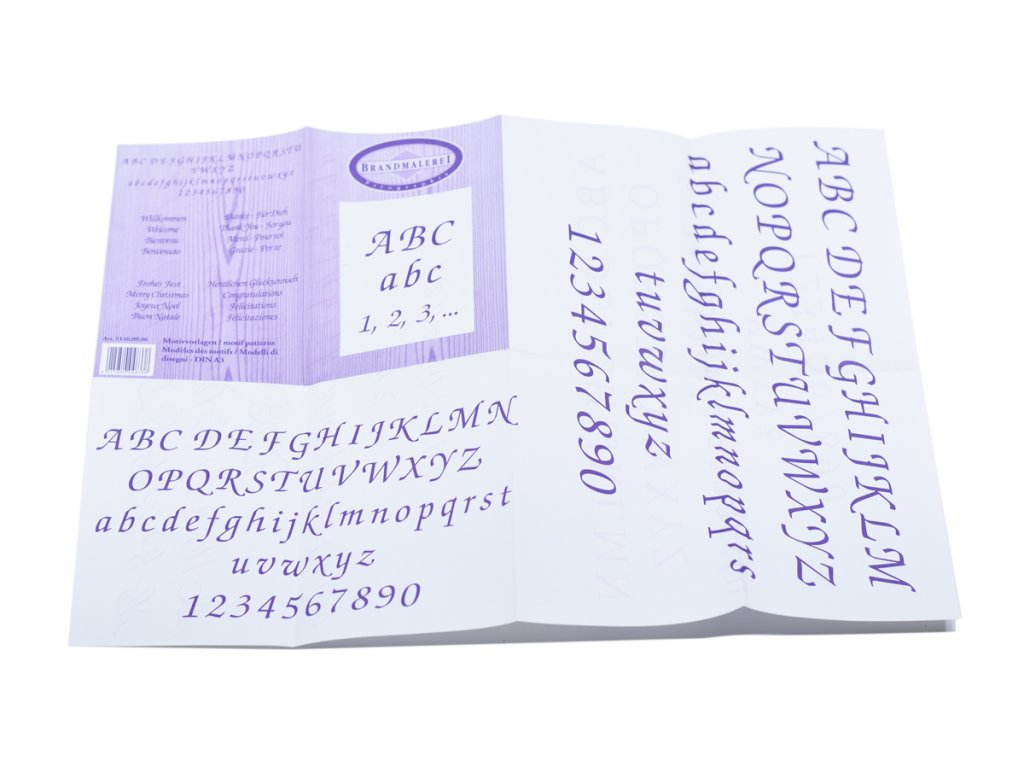 A B C D E F G H I J K L M N O P Q R S T U
V W X Y Z
a b c d e f g h i j k l m n o p q r s t u v w x y z
1 2 3 4 5 6 7 8 9 0
Willkommen
Welcome
Bienvenu
Benvenuto
Danke - Für Dich
Thank You - For you
Merci - Pour toi
Grazie - Per te
Frohes Fest
Merry Christmas
Joyeux Noel
Buon Natale
Herzlichen Glückwunsch
Congratulations
Felicitations
Felicitaziones
Art. 5140.09.06
Motivvorlagen / motif patterns
Modèles des motifs / Modelli di
disegni - DIN A3
BRANDMALEREI
Pyrographie
ABC
abc
1, 2, 3, ...
A B C D E F G H I J K L M N
O P Q R S T U V W X Y Z
a b c d e f g h i j k l m n o p q r s t
u v w x y z
1 2 3 4 5 6 7 8 9 0
A B C D E F G H I J K L M
N O P Q R S T U V W X Y Z
a b c d e f g h i j k l m n o p q r s
t u v w x y z
1 2 3 4 5 6 7 8 9 0